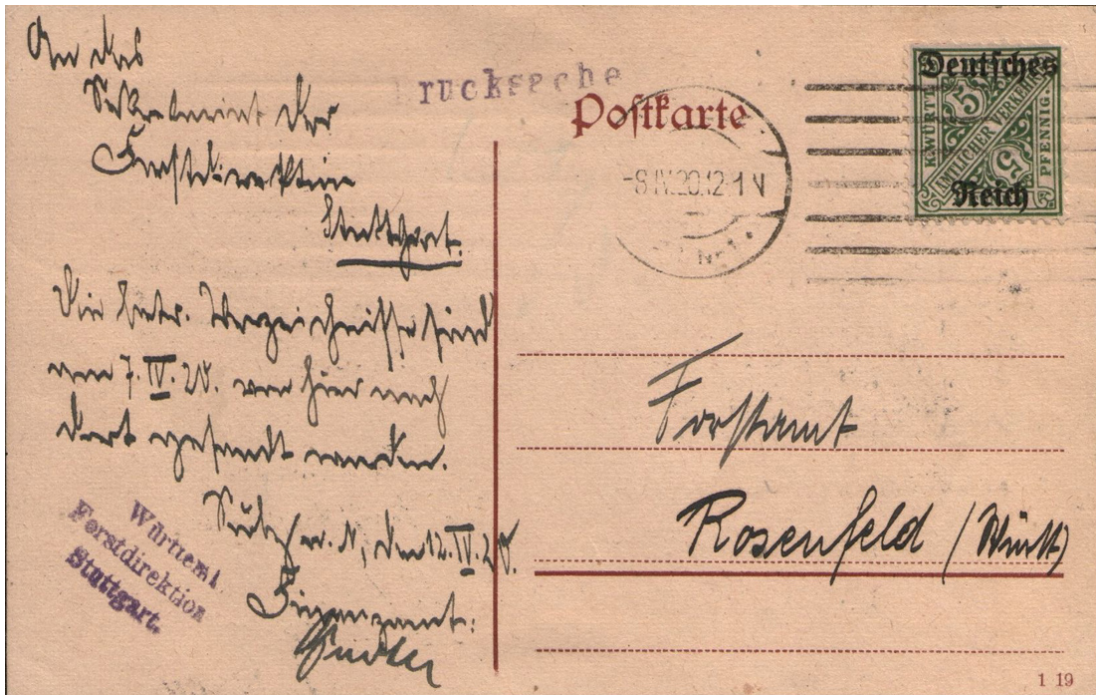 An das
Sekretariat der
Forstdirektion
Stuttgart.
Die Verzeichnisse sind
am 7. IV. 20. von hier nach
dort gesandt worden.
Sulz a. N, den 12. IV. 20.
Finanzamt:
Württem
Forstdirektion
Stuttgart.
rucksache
Postkarte
-8.IV.20.12-1 N
Deutsches
Reich
K.WÜRTT.
AMTLICHER VERKEHR
PFENNIG
5
5
Forstamt
Rosenfeld (Württ)
1 19